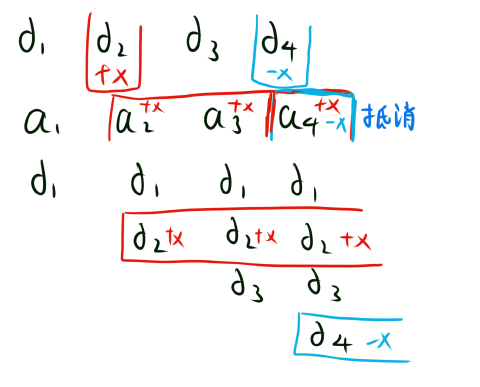 d₁ d₂ d₃ d₄
+x -x
a₁ a₂+x a₃+x a₄+x-x 抵消
d₁ d₁ d₁ d₁
d₂+x d₂+x d₂+x
d₃ d₃
d₄-x